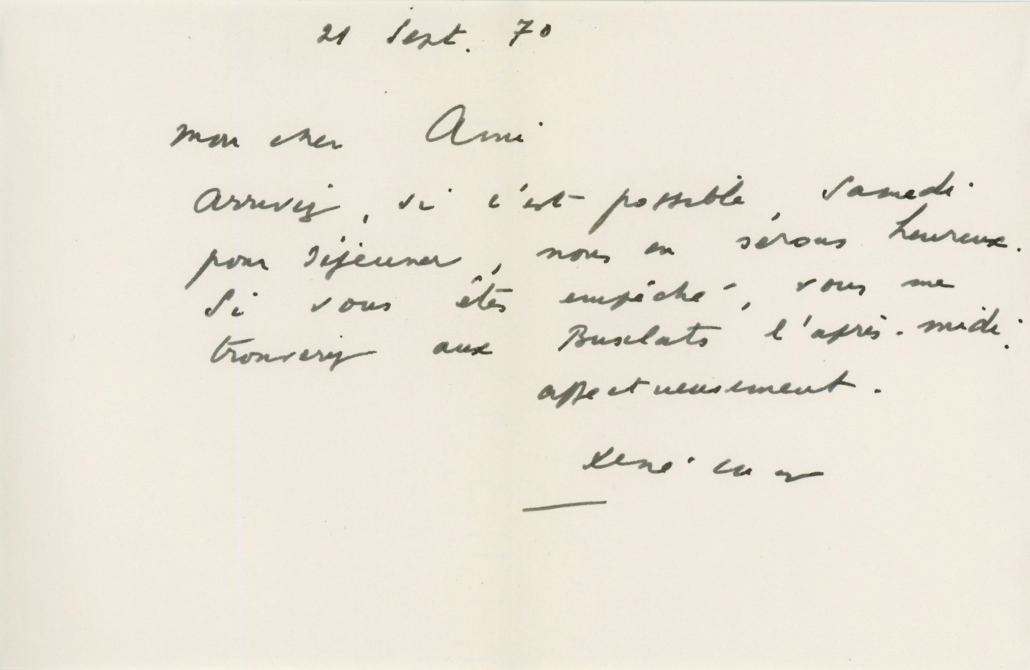 21 Sept. 70
Mon cher Ami
Arrivez, si c'est possible, Samedi
pour déjeuner, nous en serons heureux.
Si vous êtes empêché, vous me
trouverez aux Busclats l'après-midi.
affectueusement.
René Char